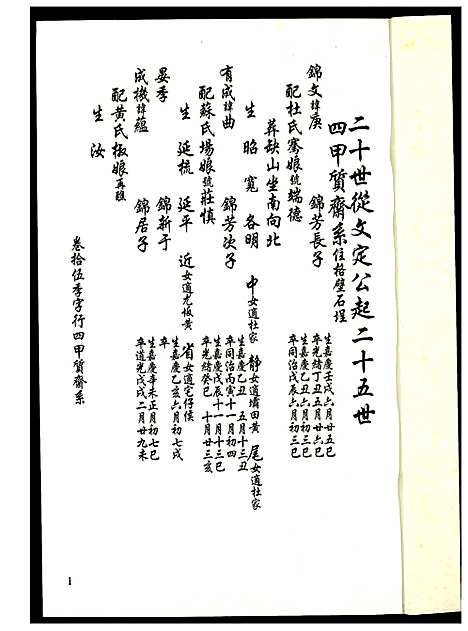 二十世從文定公起二十五世
四甲質齋系住格壁石埕
錦文諱庚 錦芳長子 生嘉慶壬戌六月廿五巳
卒光緒丁丑五月廿六巳
配杜氏騫娘號端德 生嘉慶乙丑六月初三巳
卒同治戊辰六月初三巳
葬缺山坐南向北
生 昭 寬 各明 中女適杜家 靜女適壩田黃 尾女適杜家
有成諱曲 錦芳次子 生嘉慶乙丑五月十三丑
卒同治丙寅十一月初四
配蘇氏場娘號莊慎 生嘉慶戊辰十一月十三巳
卒光緒癸巳十月廿三亥
生 延梳 延平 近女適尤坂黃 省女適宅仔侯
晏季 錦新子 生嘉慶乙亥六月初七戌
成機諱蘊 錦居子 生嘉慶辛未正月初七巳
卒道光戊戌二月廿九未
配黃氏椒娘再醮
生 汝
卷拾伍季字行四甲質齋系
1